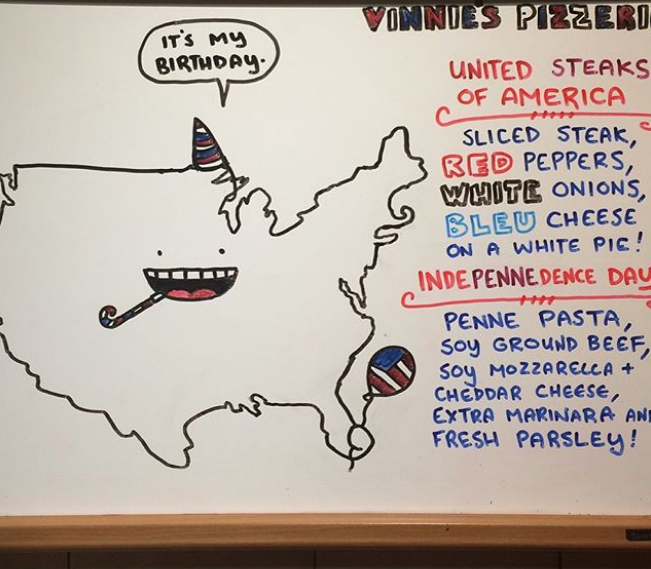 IT'S MY
BIRTHDAY.
VINNIE'S PIZZERI
UNITED STEAKS
OF AMERICA
SLICED STEAK,
RED PEPPERS,
WHITE ONIONS,
BLEU CHEESE
ON A WHITE PIE!
INDEPENNEDENCE DAY
PENNE PASTA,
SOY GROUND BEEF,
SOY MOZZARELLA +
CHEDDAR CHEESE,
EXTRA MARINARA AND
FRESH PARSLEY!